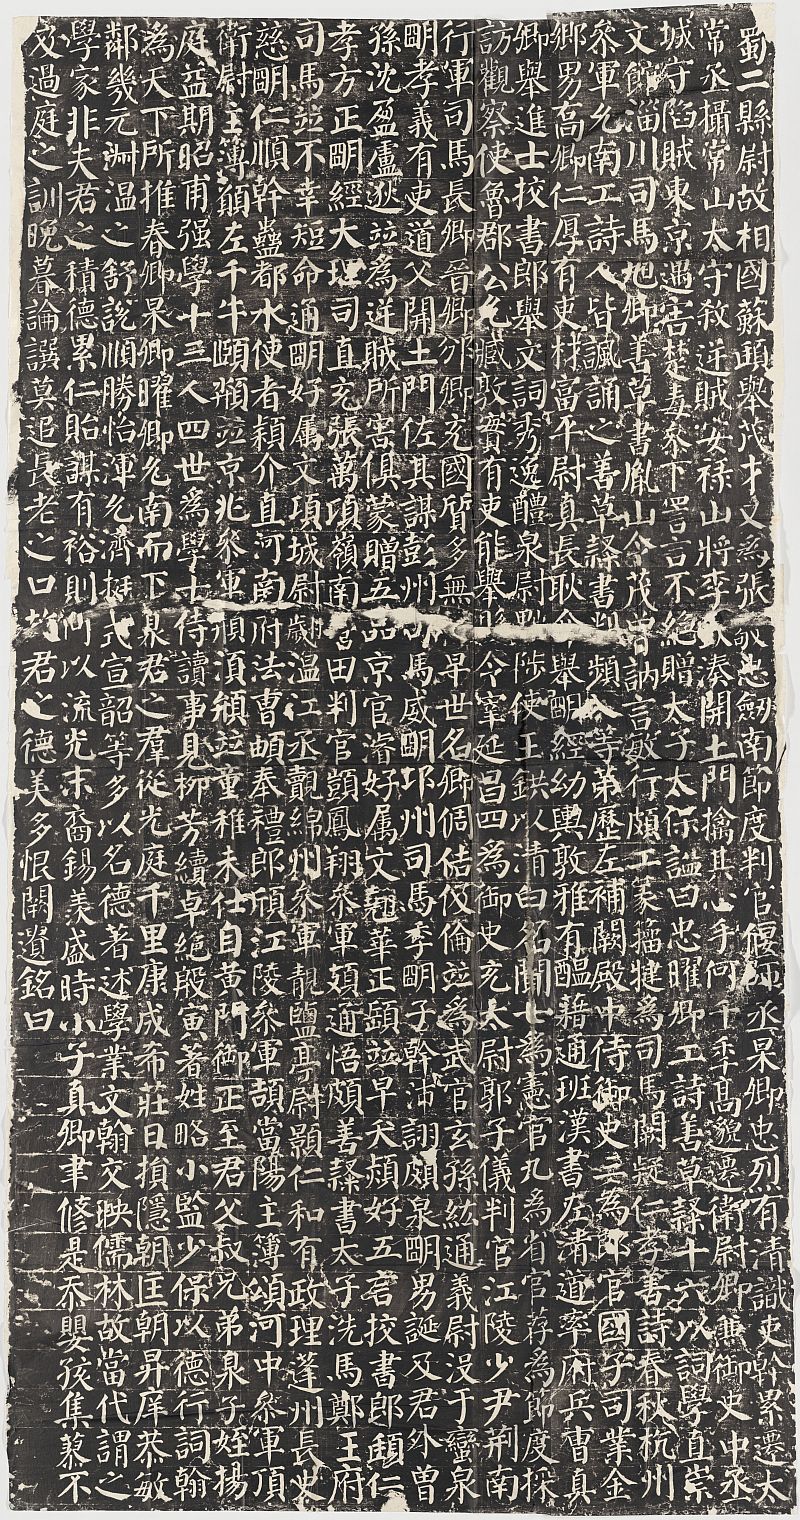 蜀二縣尉故相國蘇頲舉茂才又為張敬忠劍南節度判官偃師丞杲卿忠烈有清識吏幹累遷太
常丞攝常山太守殺逆賊安祿山將李欽湊開土門擒其心手何千年高邈遷衛尉卿兼御史中丞
城守陷賊東京遇害楚毒參下詈言不絕贈太子太保謚曰忠曜卿工詩善草隸十六以詞學直崇
文館淄川司馬旭卿善草書胤山令茂曾訥言敏行頗工篆籀犍為司馬闕疑仁孝善詩春秋杭州
參軍允南工詩人皆諷誦之善草隸書判頻入等第歷左補闕殿中侍御史三為郎官國子司業金
鄉男喬卿仁厚有吏材富平尉真長耿介舉明經幼輿敦雅有醞藉通班漢書左清道率府兵曹真
卿舉進士挍書郎舉文詞秀逸醴泉尉黜陟使王鉷以清白名聞七為憲官九為省官荐為節度採
訪觀察使魯郡公允臧敦實有吏能舉縣令宰延昌四為御史充太尉郭子儀判官江陵少尹荊南
行軍司馬長卿晉卿邠卿充國質多無早世名卿倜佶伋倫並為武官玄孫紘通義尉沒于蠻泉
明孝義有吏道父開土門佐其謀彭州司馬威明邛州司馬季明子幹沛詡頗泉明男誕及君外曾
孫沈盈盧逖並為逆賊所害俱蒙贈五品京官濬好屬文翹華正頤並早夭熲好五言挍書郎頲仁
孝方正明經大理司直充張萬頃嶺南營田判官顗鳳翔參軍頍通悟頗善隸書太子洗馬鄭王府
司馬並不幸短命通明好屬文項城尉翽溫江丞覿綿州參軍靚鹽亭尉顥仁和有政理蓬州長史
慈明仁順幹蠱都水使者穎介直河南府法曹頔奉禮郎頎江陵參軍頡當陽主簿頌河中參軍頂
衛尉主簿願左千牛頤並京兆參軍須並童稚未仕自黃門御正至君父叔兄弟泉子姪揚
庭益期昭甫強學十三人四世為學士侍讀事見柳芳續卓絕殷寅著姓略小監少保以德行詞翰
為天下所推春卿杲卿曜卿允南而下泉君之群從光庭千里康成希莊日損隱朝匡朝昇庠恭敏
鄰幾元淵溫之舒說順勝怡渾允濟挺式宣韶等多以名德著述學業文翰交映儒林故當代謂之
學家非夫君之積德累仁貽謀有裕則何以流光末裔錫羨盛時小子真卿聿脩是忝嬰孩集蓼不
及過庭之訓晚暮論譔莫追長老之口故君之德美多恨闕遺銘曰